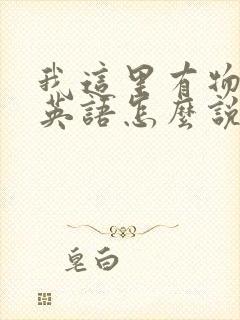 我這里有物
英語怎麼說
皂白